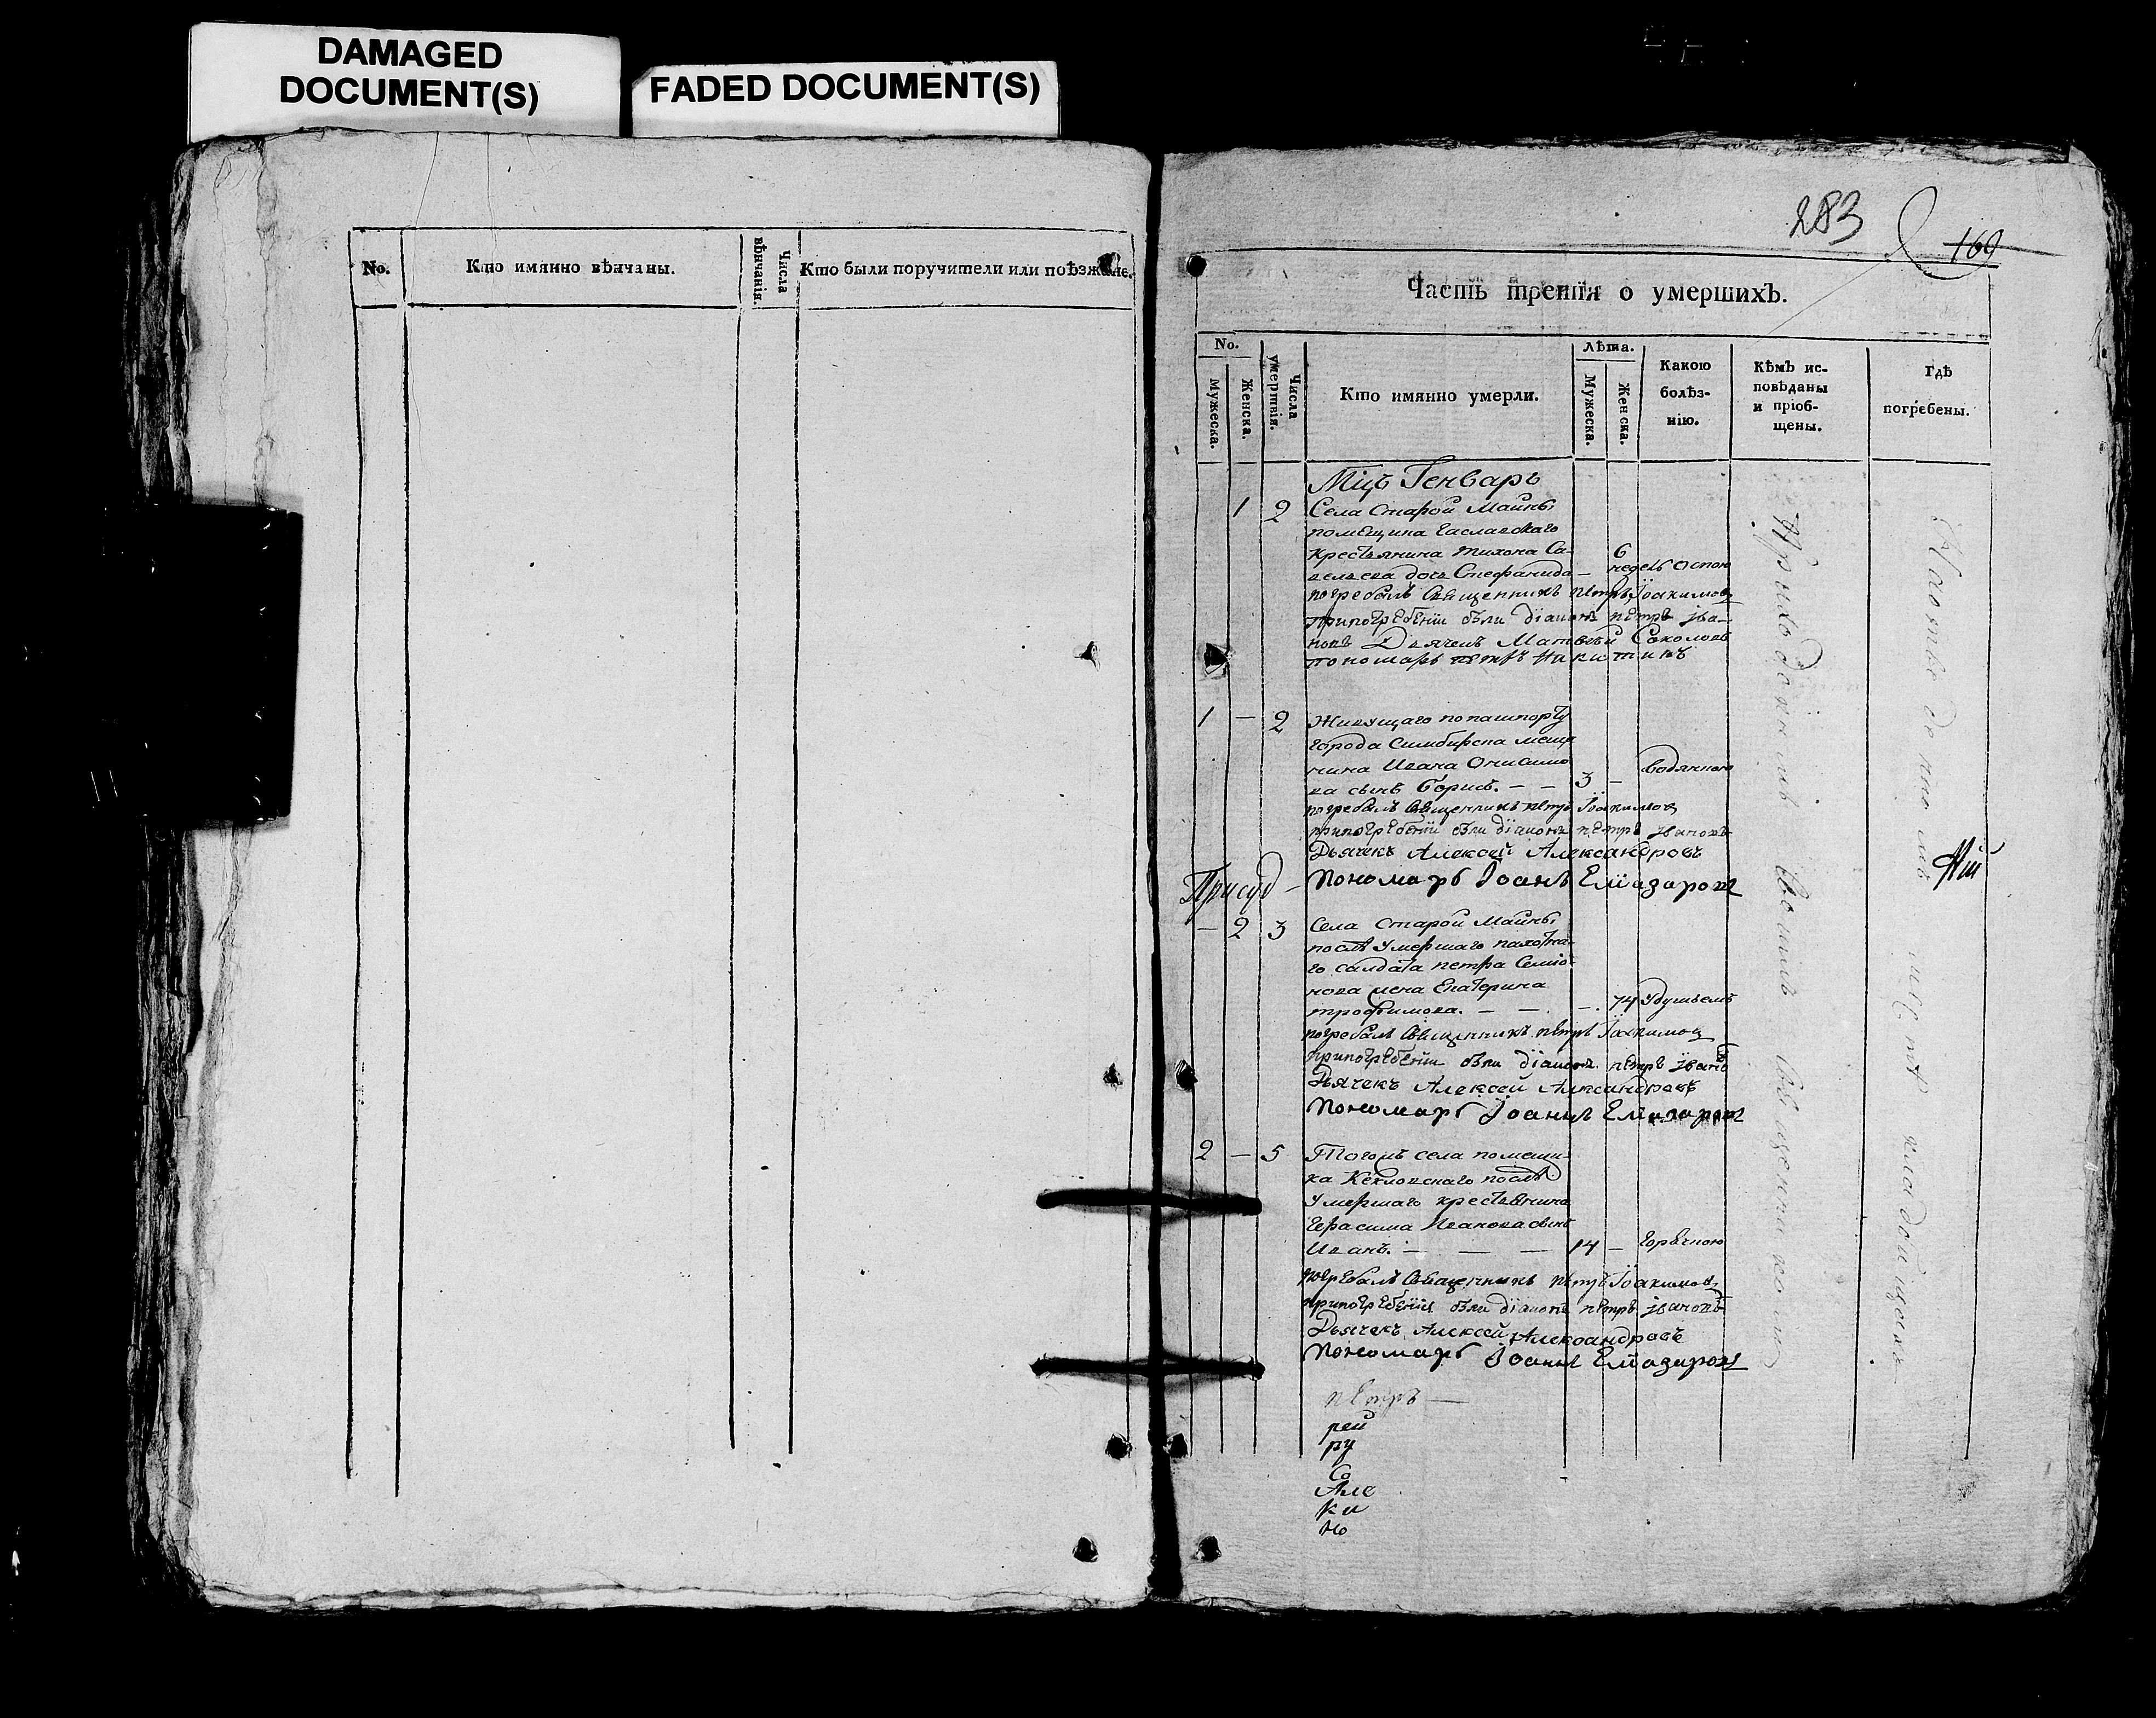 DAMAGED
DOCUMENT(S)
FADED DOCUMENT(S)
No.
Кто имянно вѣнчаны.
Числа
вѣнчанія.
Кто были поручители или поѣзжане.
283
169
Часть третія о умершихъ.
No.
Мужеска.
Женска.
Числа
умертвія.
Кто имянно умерли.
Лѣта.
Мужеска.
Женска.
Какою
болѣз-
нію.
Кѣмъ ис-
повѣданы
и пріоб-
щены.
Гдѣ
погребены.
Мцъ Генварь
1 2 Села Старой Майны
помещика
крестьянина Тихона Са-
вельева дочь Стефанида — 6 недель оспою
погребалъ Священникъ петръ Іоакимовъ
Припогребеніи были діаконъ петръ іва-
новъ Дьячекъ Матвѣй Соколовъ
пономарь петръ Никитинъ
1 — 2 Живущаго попашпорту
города Симбирска меща
нина Ивана Онисимо
ва сынъ Борисъ. — — 3 — водяною
погребалъ Священникъ петръ Іоакимовъ
припогребеніи были діаконъ петръ івановъ
Дьячекъ Алексей Александровъ
Пономарь Іоаннъ Елiазаровъ
— 2 3 Села Старой Майны
послѣ умершаго пахотна-
го салдата петра Семiо-
нова жена Екатерина
трофимова. — — — 74 удушьемъ
погребалъ Священникъ петръ Іоакимовъ
припогребеніи были діаконъ петръ івановъ
Дьячекъ Алексей Александровъ
Пономарь Іоаннъ Елiазаровъ
2 — 5 Тогожъ села помещи-
ка послѣ
умершаго крестьянина
Герасима Иванова сынъ
Иванъ. — — — 14 — горячкою
погребалъ Священникъ петръ Іоакимовъ
припогребеніи были діаконъ петръ івановъ
Дьячекъ Алексей Александровъ
Пономарь Іоаннъ Елiазаровъ
петръ —
рей
ру
Со
Але
ки
но